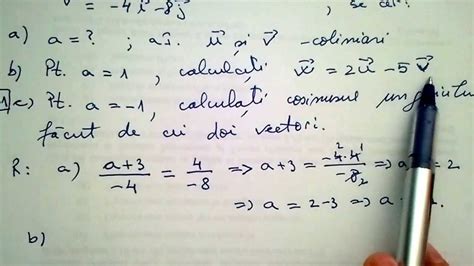 v⃗ = -4i⃗ - 8j⃗ , se cer:
a) a = ? ; a.î. u⃗ și v⃗ - coliniari
b) Pt. a = 1 , calculați x⃗ = 2u⃗ - 5v⃗
c) Pt. a = -1 , calculați cosinusul
făcut de cei doi vectori.
R: a) (a+3)/(-4) = 4/(-8) => a+3 = (-4·4)/(-8) => a = 2
=> a = 2-3 => a
b)